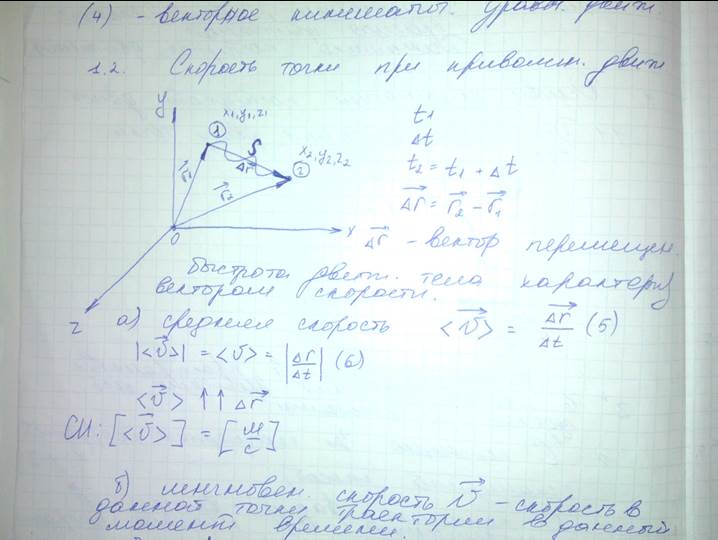 (4) - векторное кинемати. уравн. движ
1.2. Скорость точки при криволин. движ
y
x₁,y₁,z₁
1
S
x₂,y₂,z₂
2
Δr⃗
r⃗₁
r⃗₂
0
x
z
t₁
Δt
t₂ = t₁ + Δt
Δr⃗ = r⃗₂ - r⃗₁
Δr⃗ - вектор перемещен.
быстрота движ. тела характериз
вектором скорости.
а) средняя скорость <v⃗> = Δr⃗/Δt (5)
|<v⃗>| = <v> = |Δr⃗/Δt| (6)
<v⃗> ↑↑ Δr⃗
СИ: [<v⃗>] = [м/с]
б) мгновен. скорость v⃗ - скорость в
данной точки траектории в данный
момент времени.